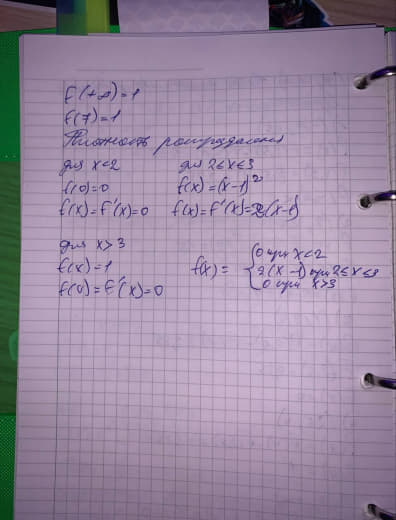 F(+∞)=1
F(7)=1
Плотность распределения
для x<2 для 2≤x≤3
f(0)=0 f(x)=(x-1)²
f(x)=F'(x)=0 f(x)=F'(x)=2(x-1)
для x>3
f(x)=1
f(0)=F'(x)=0
f(x)= {0 при x<2
2(x-1) при 2≤x≤3
0 при x>3